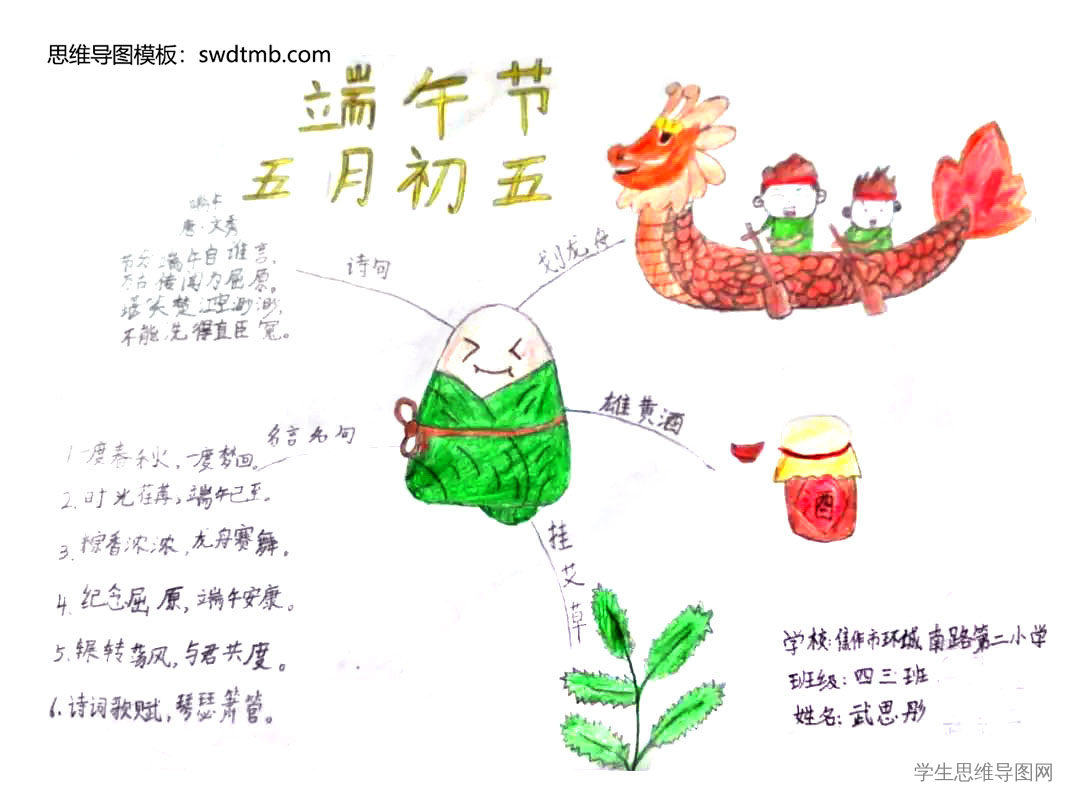 思维导图模板：swdtmb.com
端午节
五月初五
端午
唐·文秀
节分端午自谁言，
万古传闻为屈原。
堪笑楚江空渺渺，
不能洗得直臣冤。
诗句
划龙舟
雄黄酒
酒
名言名句
1.一度春秋火，一度梦回。
2.时光荏苒，端午已至。
3.粽香浓浓，龙舟赛舞。
4.纪念屈原，端午安康。
5.辗转荡风，与君共度。
6.诗词歌赋，琴瑟箫管。
挂艾草
学校：焦作市环城南路第二小学
班级：四三班
姓名：武思彤
学生思维导图网